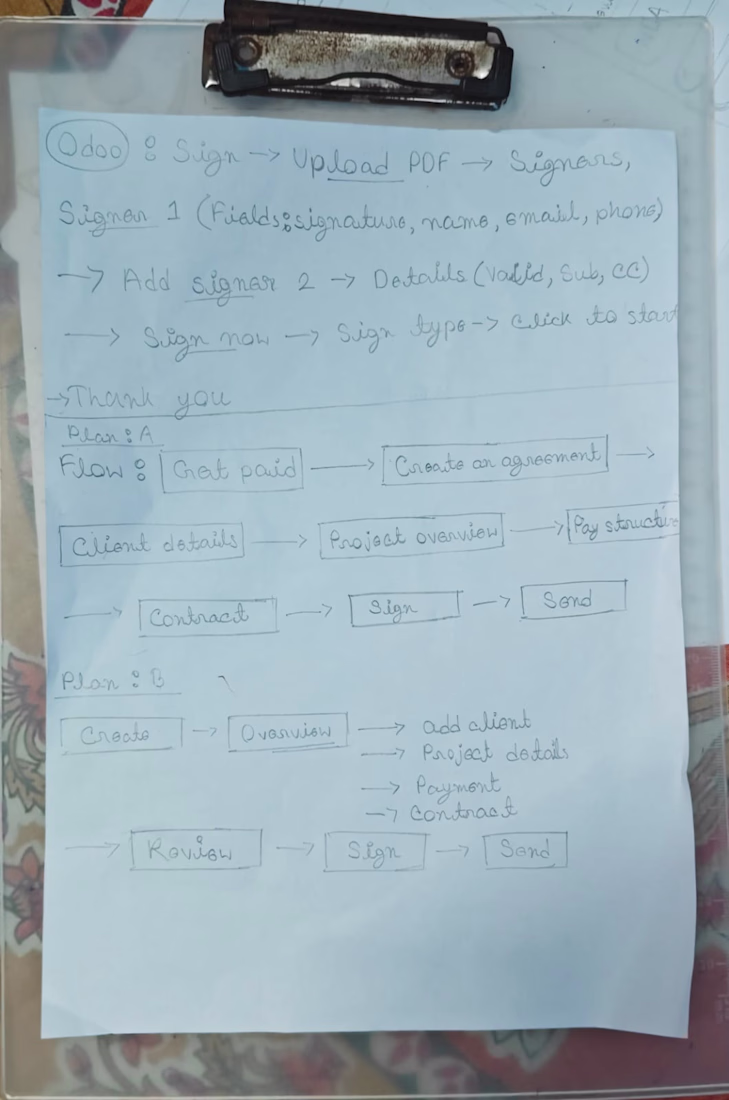 Odoo : Sign → Upload PDF → Signers,
Signer 1 (Fields:signature, name, email, phone)
→ Add signer 2 → Details (Valid, Sub, CC)
→ Sign now → Sign type → Click to start
→ Thank you
Plan : A
Flow : Get paid → Create an agreement →
Client details → Project overview → Pay structure
→ Contract → Sign → Send
Plan : B
Create → Overview → add client
→ Project details
→ Payment
→ Contract
→ Review → Sign → Send